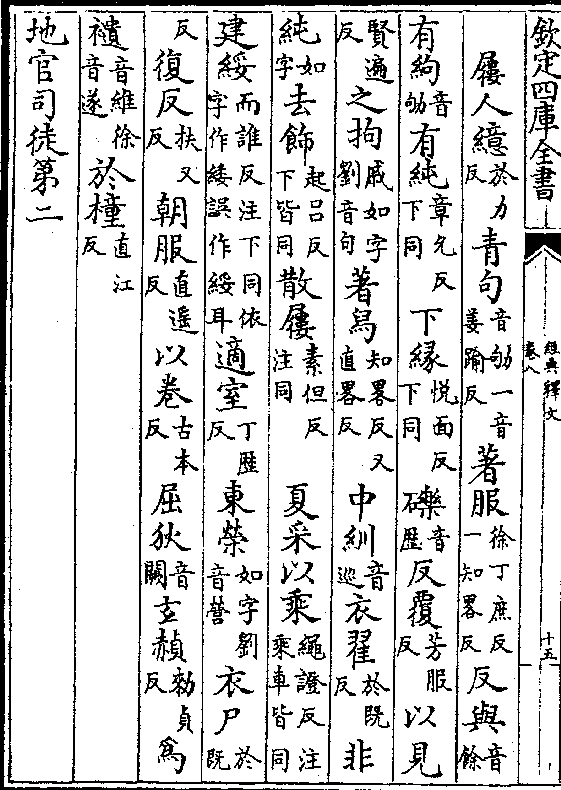 欽定四庫全書
經典釋文
卷八
十五
屨人繶於力反 青句音劬一音姜踰反 著服徐丁庶反一知畧反 反與音餘
有絇音劬 有純章允反下同 下縁悦面反下同 礫音歷 反覆芳服反 以見
賢遍反 之拘戚如字劉音句 著舄知畧反又直畧反 中紃音巡 衣翟於既反 非
純如字 去飾起呂反下皆同 散屨素但反注同 夏采以乘繩證反注乘車皆同
建綏而誰反注下同依字作緌誤作綏耳 適室丁歴反 東榮如字劉音營 衣尸於既
反 復反扶又反 朝服直遥反 以卷古本反 屈狄音闕 玄赬勑貞反 爲
䙡音維徐音遂 於橦直江反
地官司徒第二